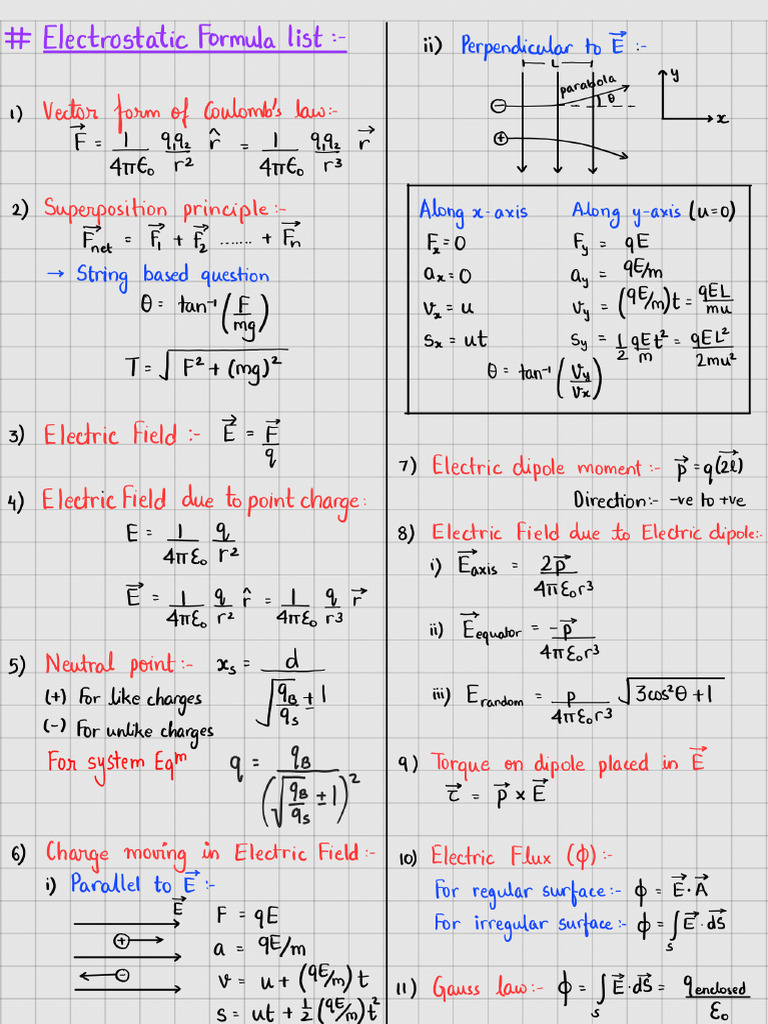 # Electrostatic Formula list :-
1) Vector form of Coulomb's law:-
F⃗ = 1/4πε₀ q₁q₂/r² r̂ = 1/4πε₀ q₁q₂/r³ r⃗
2) Superposition principle:-
F⃗net = F⃗₁ + F⃗₂ ....... + F⃗n
→ String based question
θ = tan⁻¹(F/mg)
T = √(F² + (mg)²)
3) Electric Field :- E⃗ = F⃗/q
4) Electric Field due to point charge:
E = 1/4πε₀ q/r²
E⃗ = 1/4πε₀ q/r² r̂ = 1/4πε₀ q/r³ r⃗
5) Neutral point:- xₛ = d/(√(q_B/q_S) ± 1)
(+) For like charges
(-) For unlike charges
For system Eqᵐ q = q_B/(√(q_B/q_S) ± 1)²
6) Charge moving in Electric Field:-
i) Parallel to E⃗ :-
E⃗
+
-
F = qE
a = qE/m
v = u + (qE/m)t
s = ut + 1/2 (qE/m)t²
ii) Perpendicular to E⃗ :-
L
parabola
θ
-
+
y
x
Along x-axis
Fₓ = 0
aₓ = 0
vₓ = u
sₓ = ut
Along y-axis (u=0)
F_y = qE
a_y = qE/m
v_y = (qE/m)t = qEL/mu
s_y = 1/2 qE/m t² = qEL²/2mu²
θ = tan⁻¹(v_y/vₓ)
7) Electric dipole moment :- p⃗ = q(2l⃗)
Direction:- -ve to +ve
8) Electric Field due to Electric dipole:-
i) E⃗axis = 2p⃗/4πε₀r³
ii) E⃗equator = -p⃗/4πε₀r³
iii) Erandom = p/4πε₀r³ √(3cos²θ + 1)
9) Torque on dipole placed in E⃗
τ⃗ = p⃗ × E⃗
10) Electric Flux (ϕ) :-
For regular surface:- ϕ = E⃗·A⃗
For irregular surface:- ϕ = ∫ₛ E⃗·dS⃗
11) Gauss law:- ϕ = ∫ₛ E⃗·dS⃗ = q enclosed/ε₀